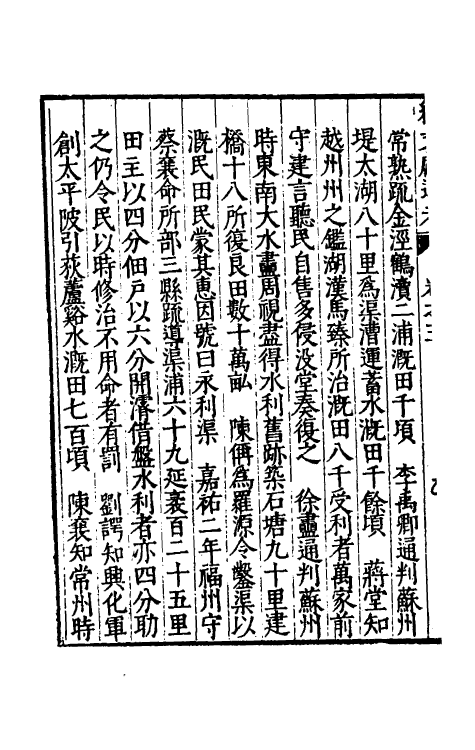 常熟疏金涇鶴瀆二浦溉田千頃　李禹卿通判蘇州
堤太湖八十里爲渠漕運蓄水溉田千餘頃　蔣堂知
越州州之鑑湖漢馬臻所治溉田八千受利者萬家前
守建言聽民自售多侵没堂奏復之　徐𧗿通判蘇州
時東南大水𧗿周視盡得水利舊跡築石塘九十里建
橋十八所復良田數十萬畝　陳偁爲羅源令鑿渠以
溉民田民蒙其惠因號曰永利渠　嘉祐二年福州守
蔡襄命所部三縣疏導渠浦六十九延袤百二十五里
田主以四分佃戶以六分開濬借盤水利者亦四分助
之仍令民以時修治不用命者有罰　劉諤知興化軍
創太平陂引荻蘆谿水溉田七百頃　陳襄知常州時